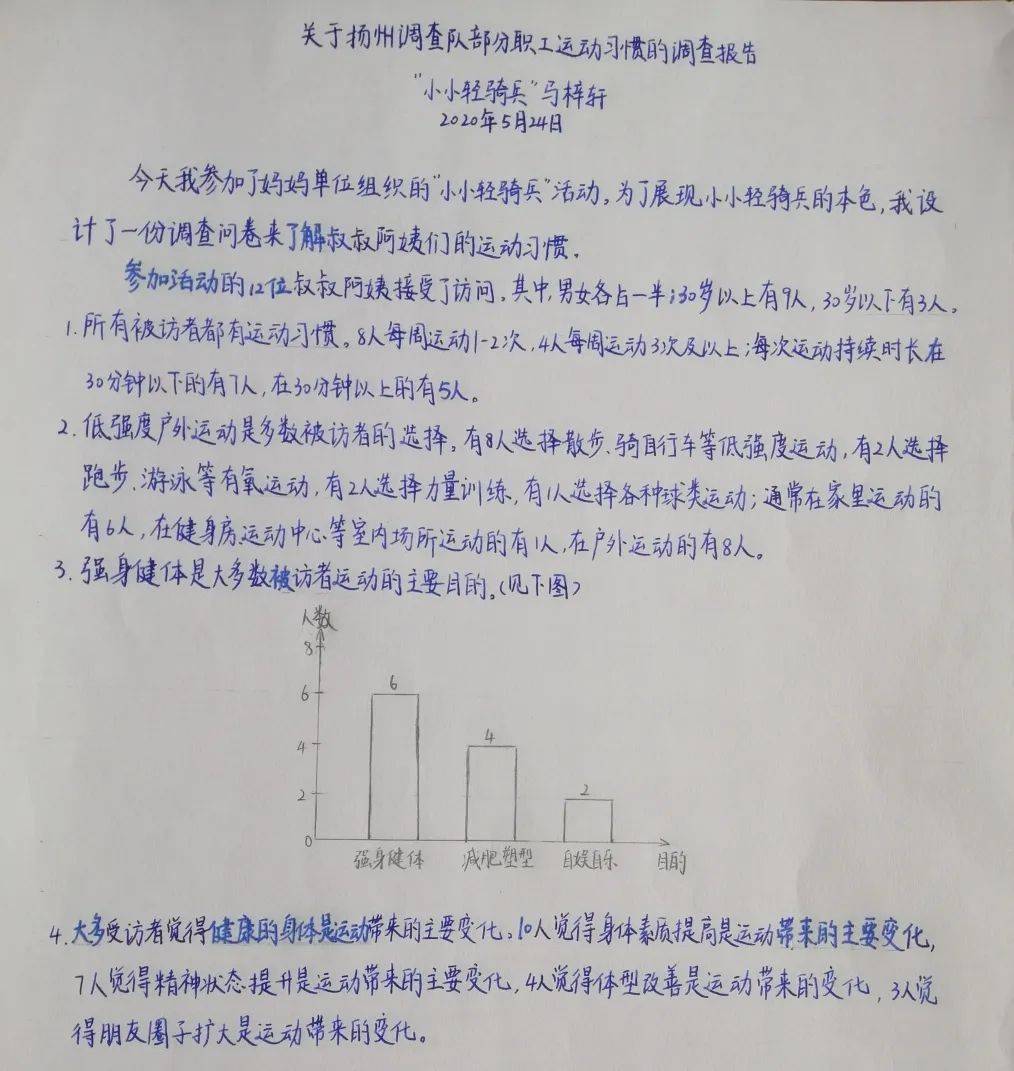 关于扬州调查队部分职工运动习惯的调查报告
“小小轻骑兵”马梓轩
2020年5月24日
今天我参加了妈妈单位组织的“小小轻骑兵”活动。为了展现小小轻骑兵的本色,我设
计了一份调查问卷来了解叔叔阿姨们的运动习惯。
参加活动的12位叔叔阿姨接受了访问。其中,男女各占一半;30岁以上有9人,30岁以下有3人。
1.所有被访者都有运动习惯。8人每周运动1-2次,4人每周运动3次及以上;每次运动持续时长在
30分钟以下的有7人,在30分钟以上的有5人。
2.低强度户外运动是多数被访者的选择。有8人选择散步、骑自行车等低强度运动,有2人选择
跑步、游泳等有氧运动,有2人选择力量训练,有1人选择各种球类运动;通常在家里运动的
有6人,在健身房、运动中心等室内场所运动的有1人,在户外运动的有8人。
3.强身健体是大多数被访者运动的主要目的。(见下图)
人数
8
6
4
2
0
6
4
2
强身健体 减肥塑型 自娱自乐 目的
4.大多受访者觉得健康的身体是运动带来的主要变化。10人觉得身体素质提高是运动带来的主要变化,
7人觉得精神状态提升是运动带来的主要变化,4人觉得体型改善是运动带来的变化,3人觉
得朋友圈子扩大是运动带来的变化。